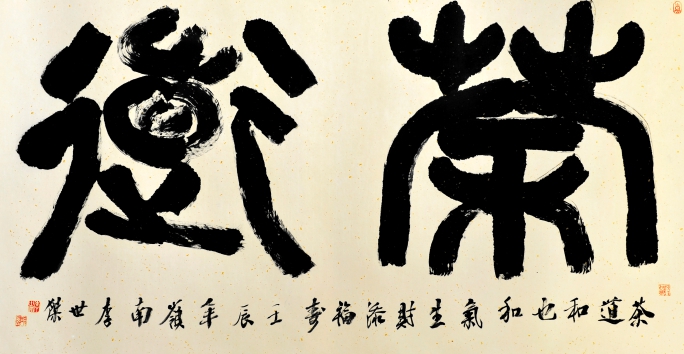 茶道
茶道和也和氣生財添福壽壬辰年嶺南李世傑